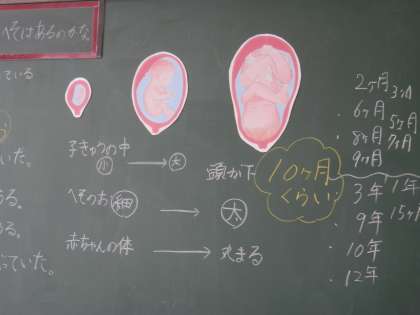 へそはあるのかな
ている
いた。
ある。
ある。
っていた。
子きゅうの中
小 → 大
へそのお 細 → 太
赤ちゃんの体 → 丸まる
頭が下
10ヶ月
くらい
2ヶ月
3ヶ月
・6ヶ月
5ヶ月
・8ヶ月
7ヶ月
・9ヶ月
・3年
1年
・9年
15ヶ月
・10年
・12年